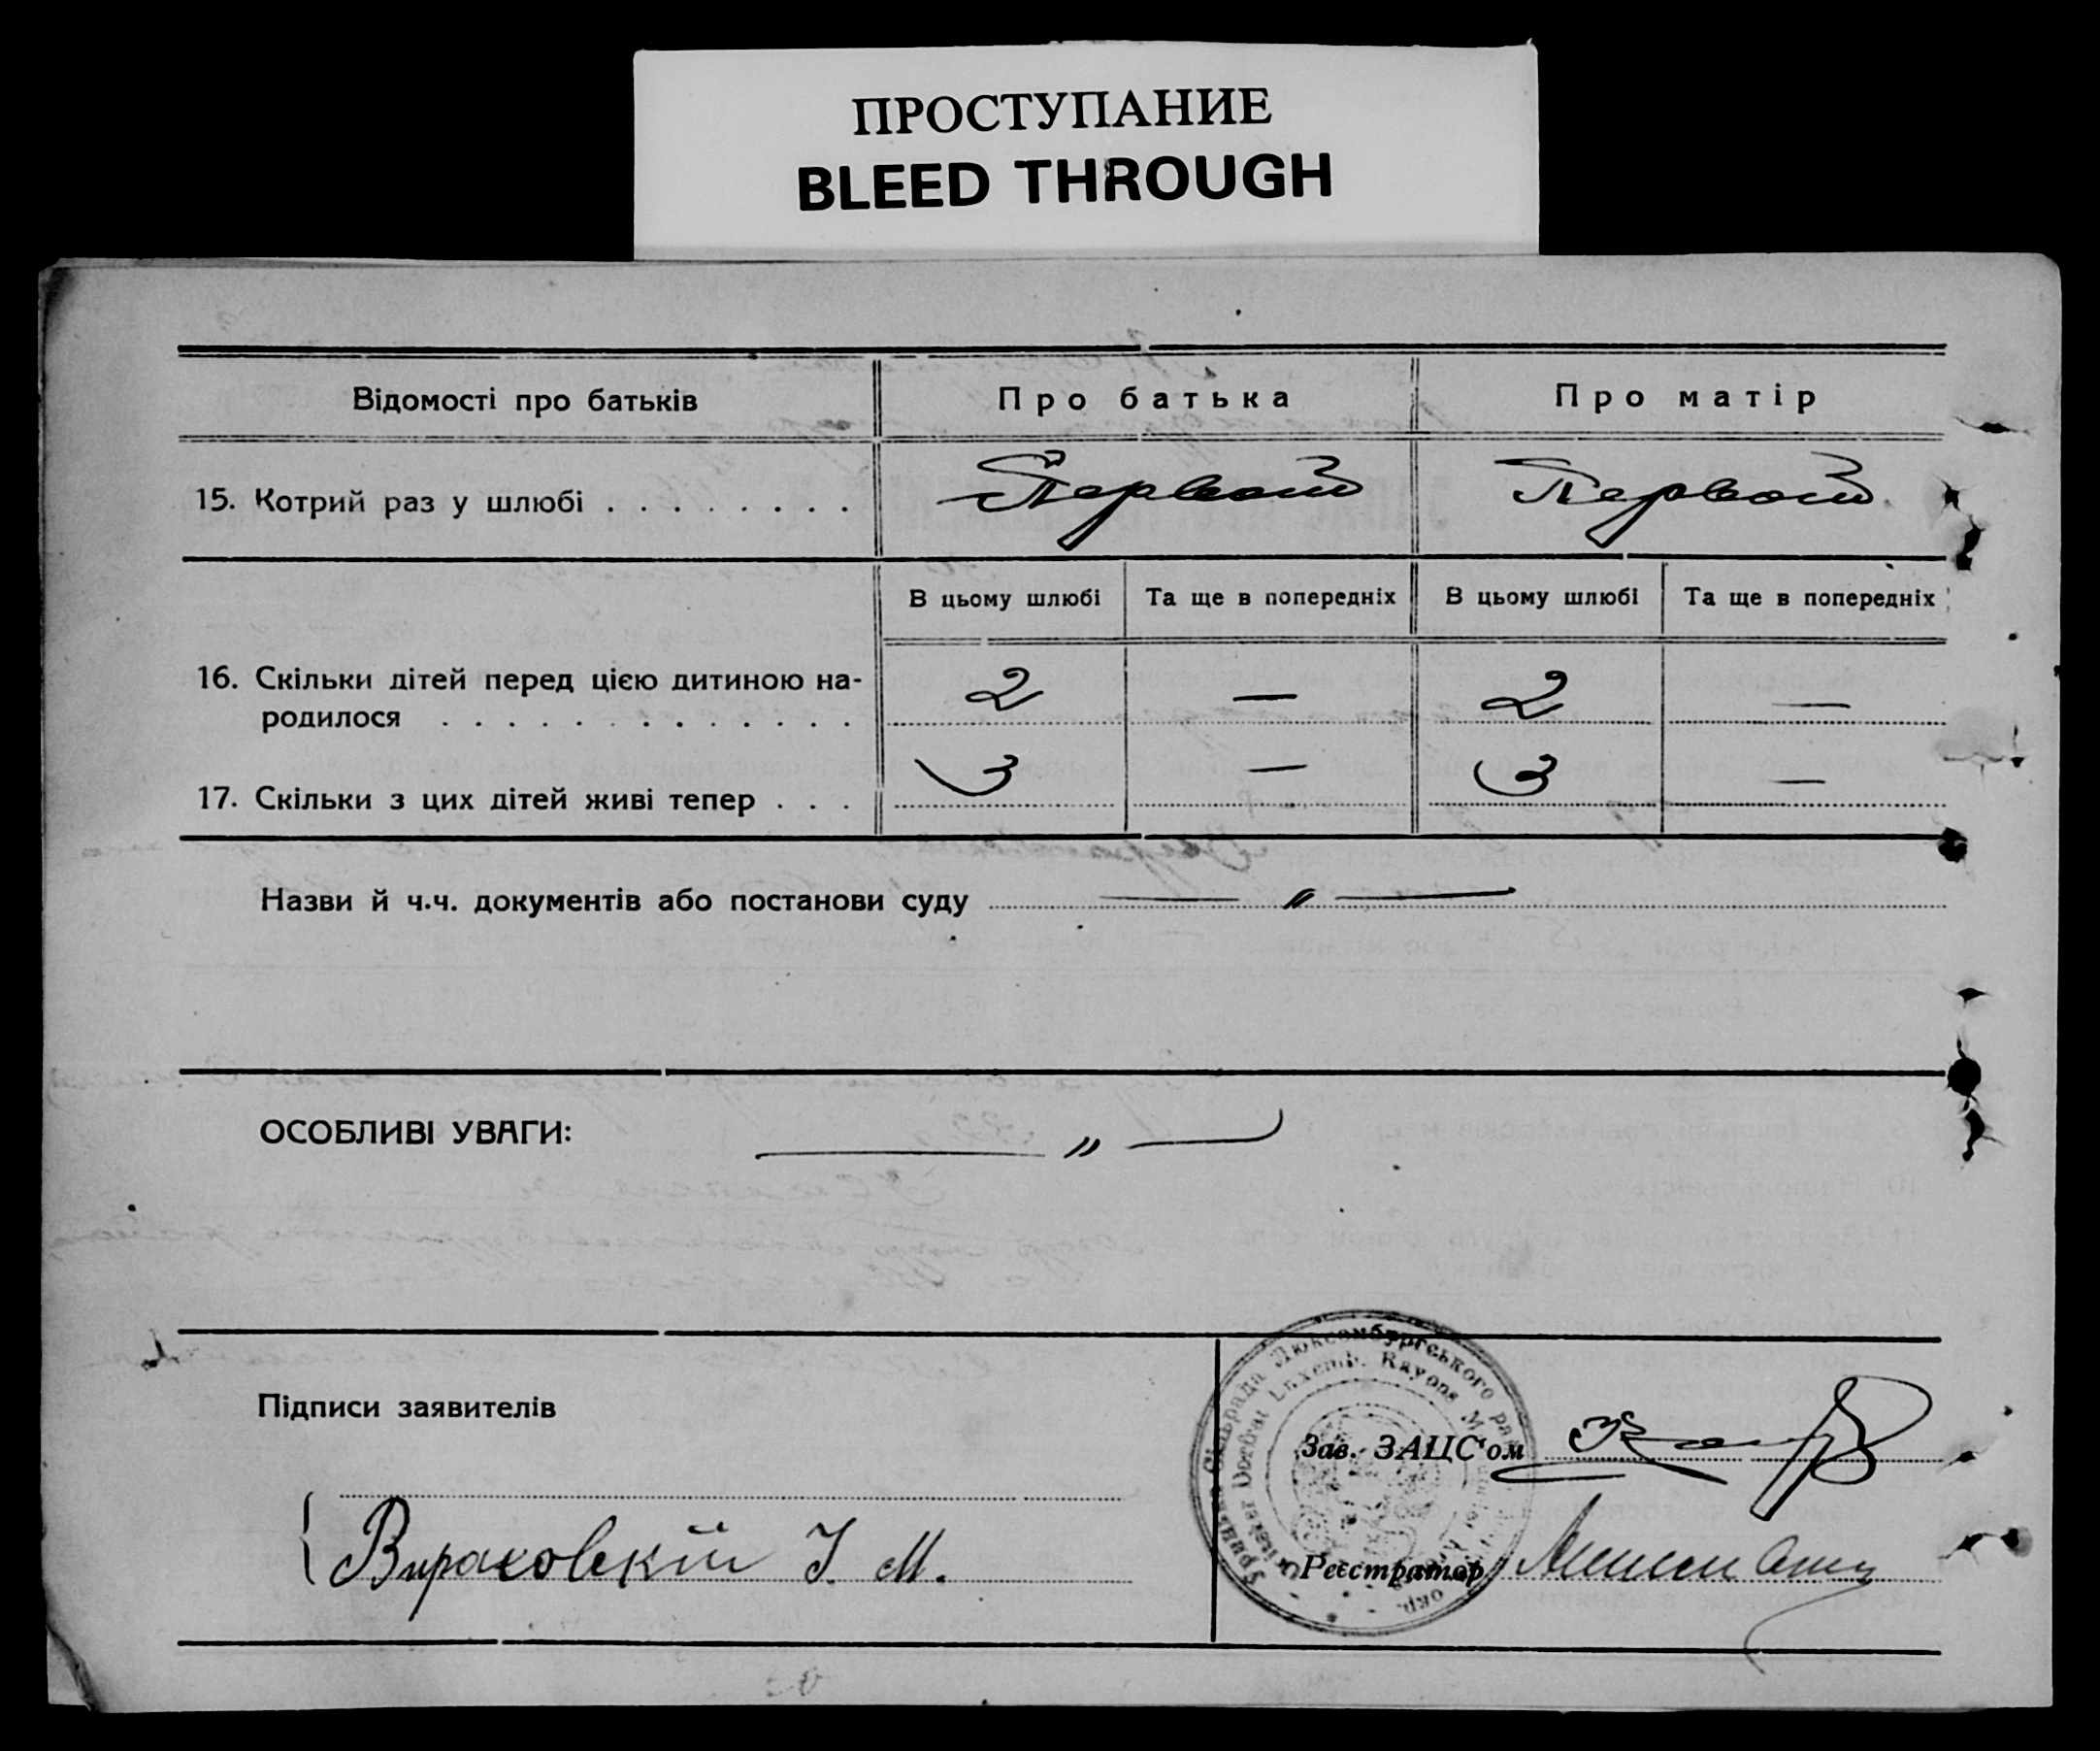 ПРОСТУПАНИЕ
BLEED THROUGH
Відомості про батьків Про батька Про матір
15. Котрий раз у шлюбі . . . . . . . . Первый Первый
В цьому шлюбі Та ще в попередніх В цьому шлюбі Та ще в попередніх
16. Скільки дітей перед цією дитиною на-
родилося . . . . . . . . . . . . . 2 — 2 —
17. Скільки з цих дітей живі тепер . . . 3 — 3 —
Назви й ч.ч. документів або постанови суду — „ —
ОСОБЛИВІ УВАГИ: — „ —
Люксембургського
Luxemb. Rayons
Підписи заявителів
Зав. ЗАЦС'ом
Реєстратор
І. М.